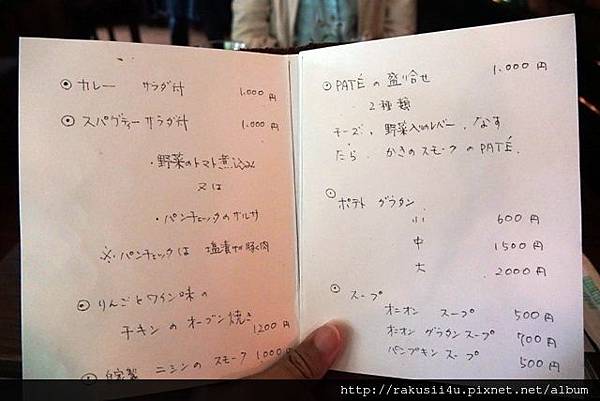 ⦿ カレー サラダ付 1.000円
⦿ スパゲティー サラダ付 1.000円
・野菜のトマト煮込み
又は
・パンチェッタのサルサ
※・パンチェッタは 塩漬け豚肉
⦿ りんごとワイン味の
チキンのオーブン焼き 1200円
⦿ 自家製 ニシンのスモーク 1000円
⦿ PATÉの盛り合せ 1.000円
2種類
チーズ、野菜入りレバー、なす
たら、かきのスモークのPATÉ.
⦿ ポテトグラタン
小 600円
中 1500円
大 2000円
⦿ スープ
オニオン スープ 500円
オニオン グラタンスープ 700円
パンプキン スープ 500円
http://rakusii4u.pixnet.net/album